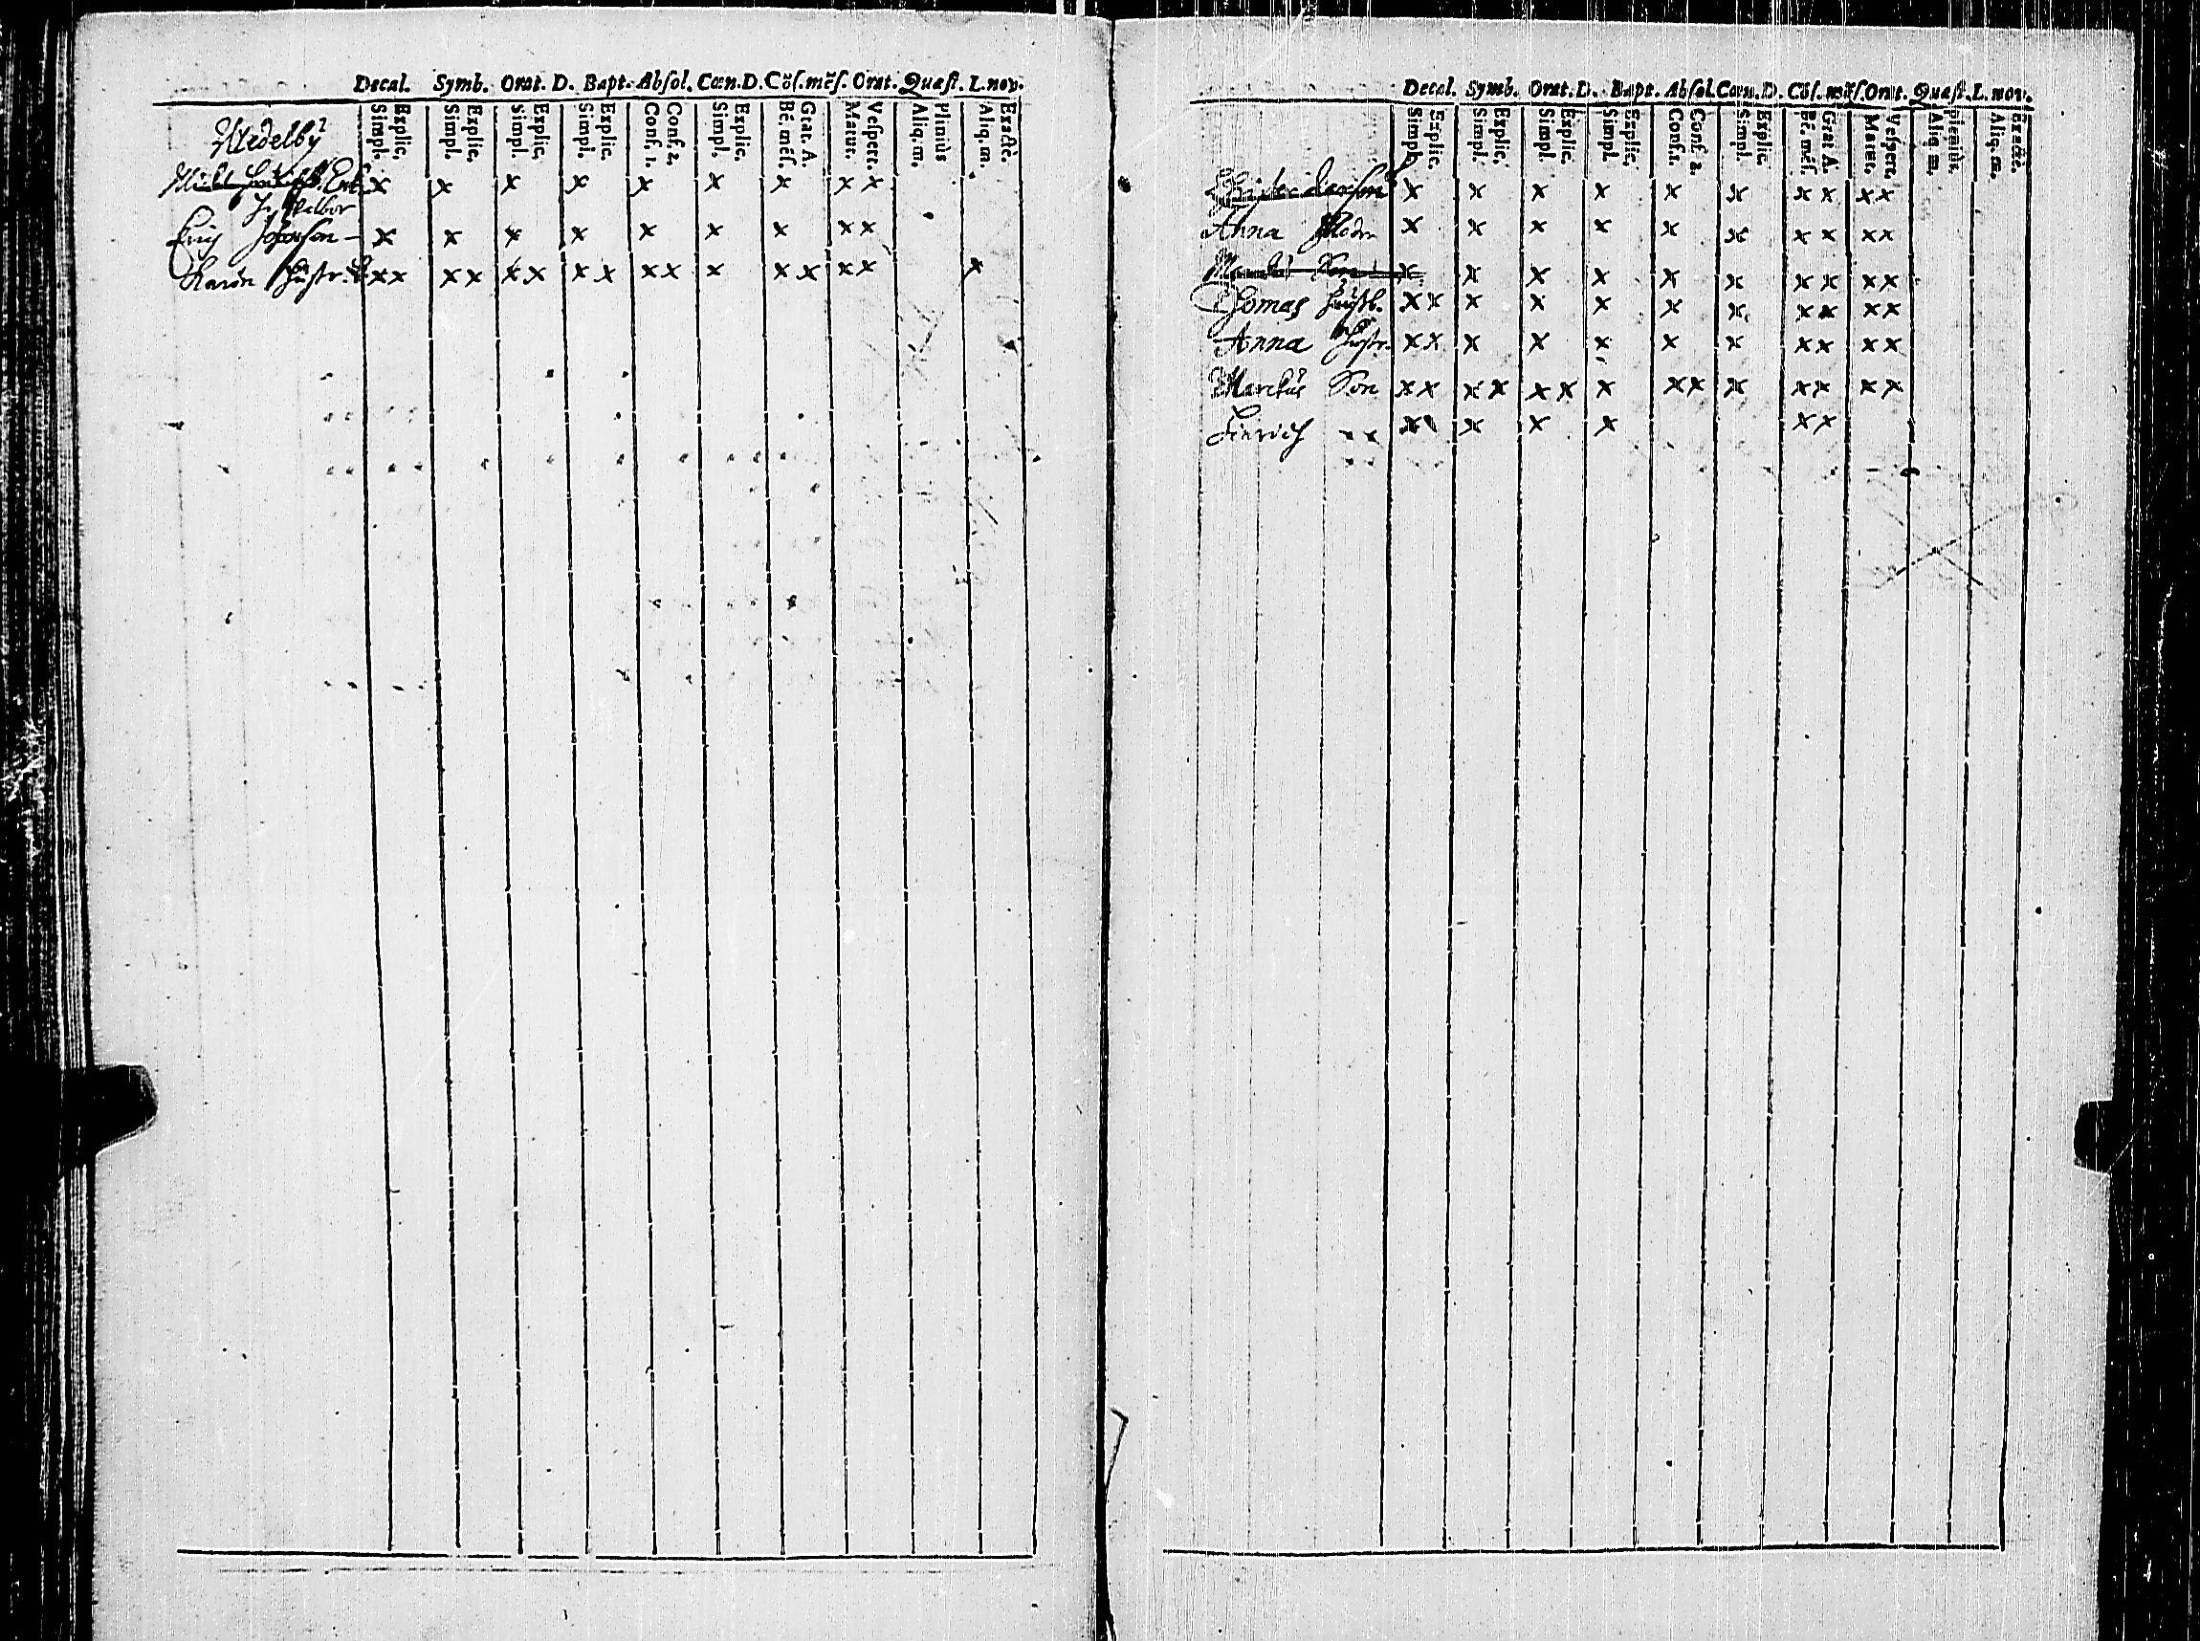 Decal. Symb. Orat. D. Bapt. Absol. Cœn. D. Cōſ. mēſ. Orat. Quæſt. L. nov.
Explic. Simpl. Explic. Simpl. Explic. Simpl. Explic. Simpl. Conf. 2. Conf. 1. Explic. Simpl. Grat. A. Bē. mēſ. Veſpert. Matut. Pliniùs Aliq. m. Exactè. Aliq. m.
Medelbÿ
x x x x x x x x x
Erich Johanson x x x x x x x x x
Karin Hustr. x x x x x x x x x x x x x x x x x
Decal. Symb. Orat. D. Bapt. Absol. Cœn. D. Cōſ. mēſ. Orat. Quæſt. L. nov.
Explic. Simpl. Explic. Simpl. Explic. Simpl. Explic. Simpl. Conf. 2. Conf. 1. Explic. Simpl. Grat. A. Bē. mēſ. Veſpert. Matut. pleniùs. Aliq. m. Exactè. Aliq. m.
x x x x x x x x x x
Anna x x x x x x x x x x
Son x x x x x x x x x x
Thomas Hussb. x x x x x x x x x x x
Anna Hustr. x x x x x x x x x x x
Marckus Son x x x x x x x x x x x x x x x
Hinrich x x x x x x x x x